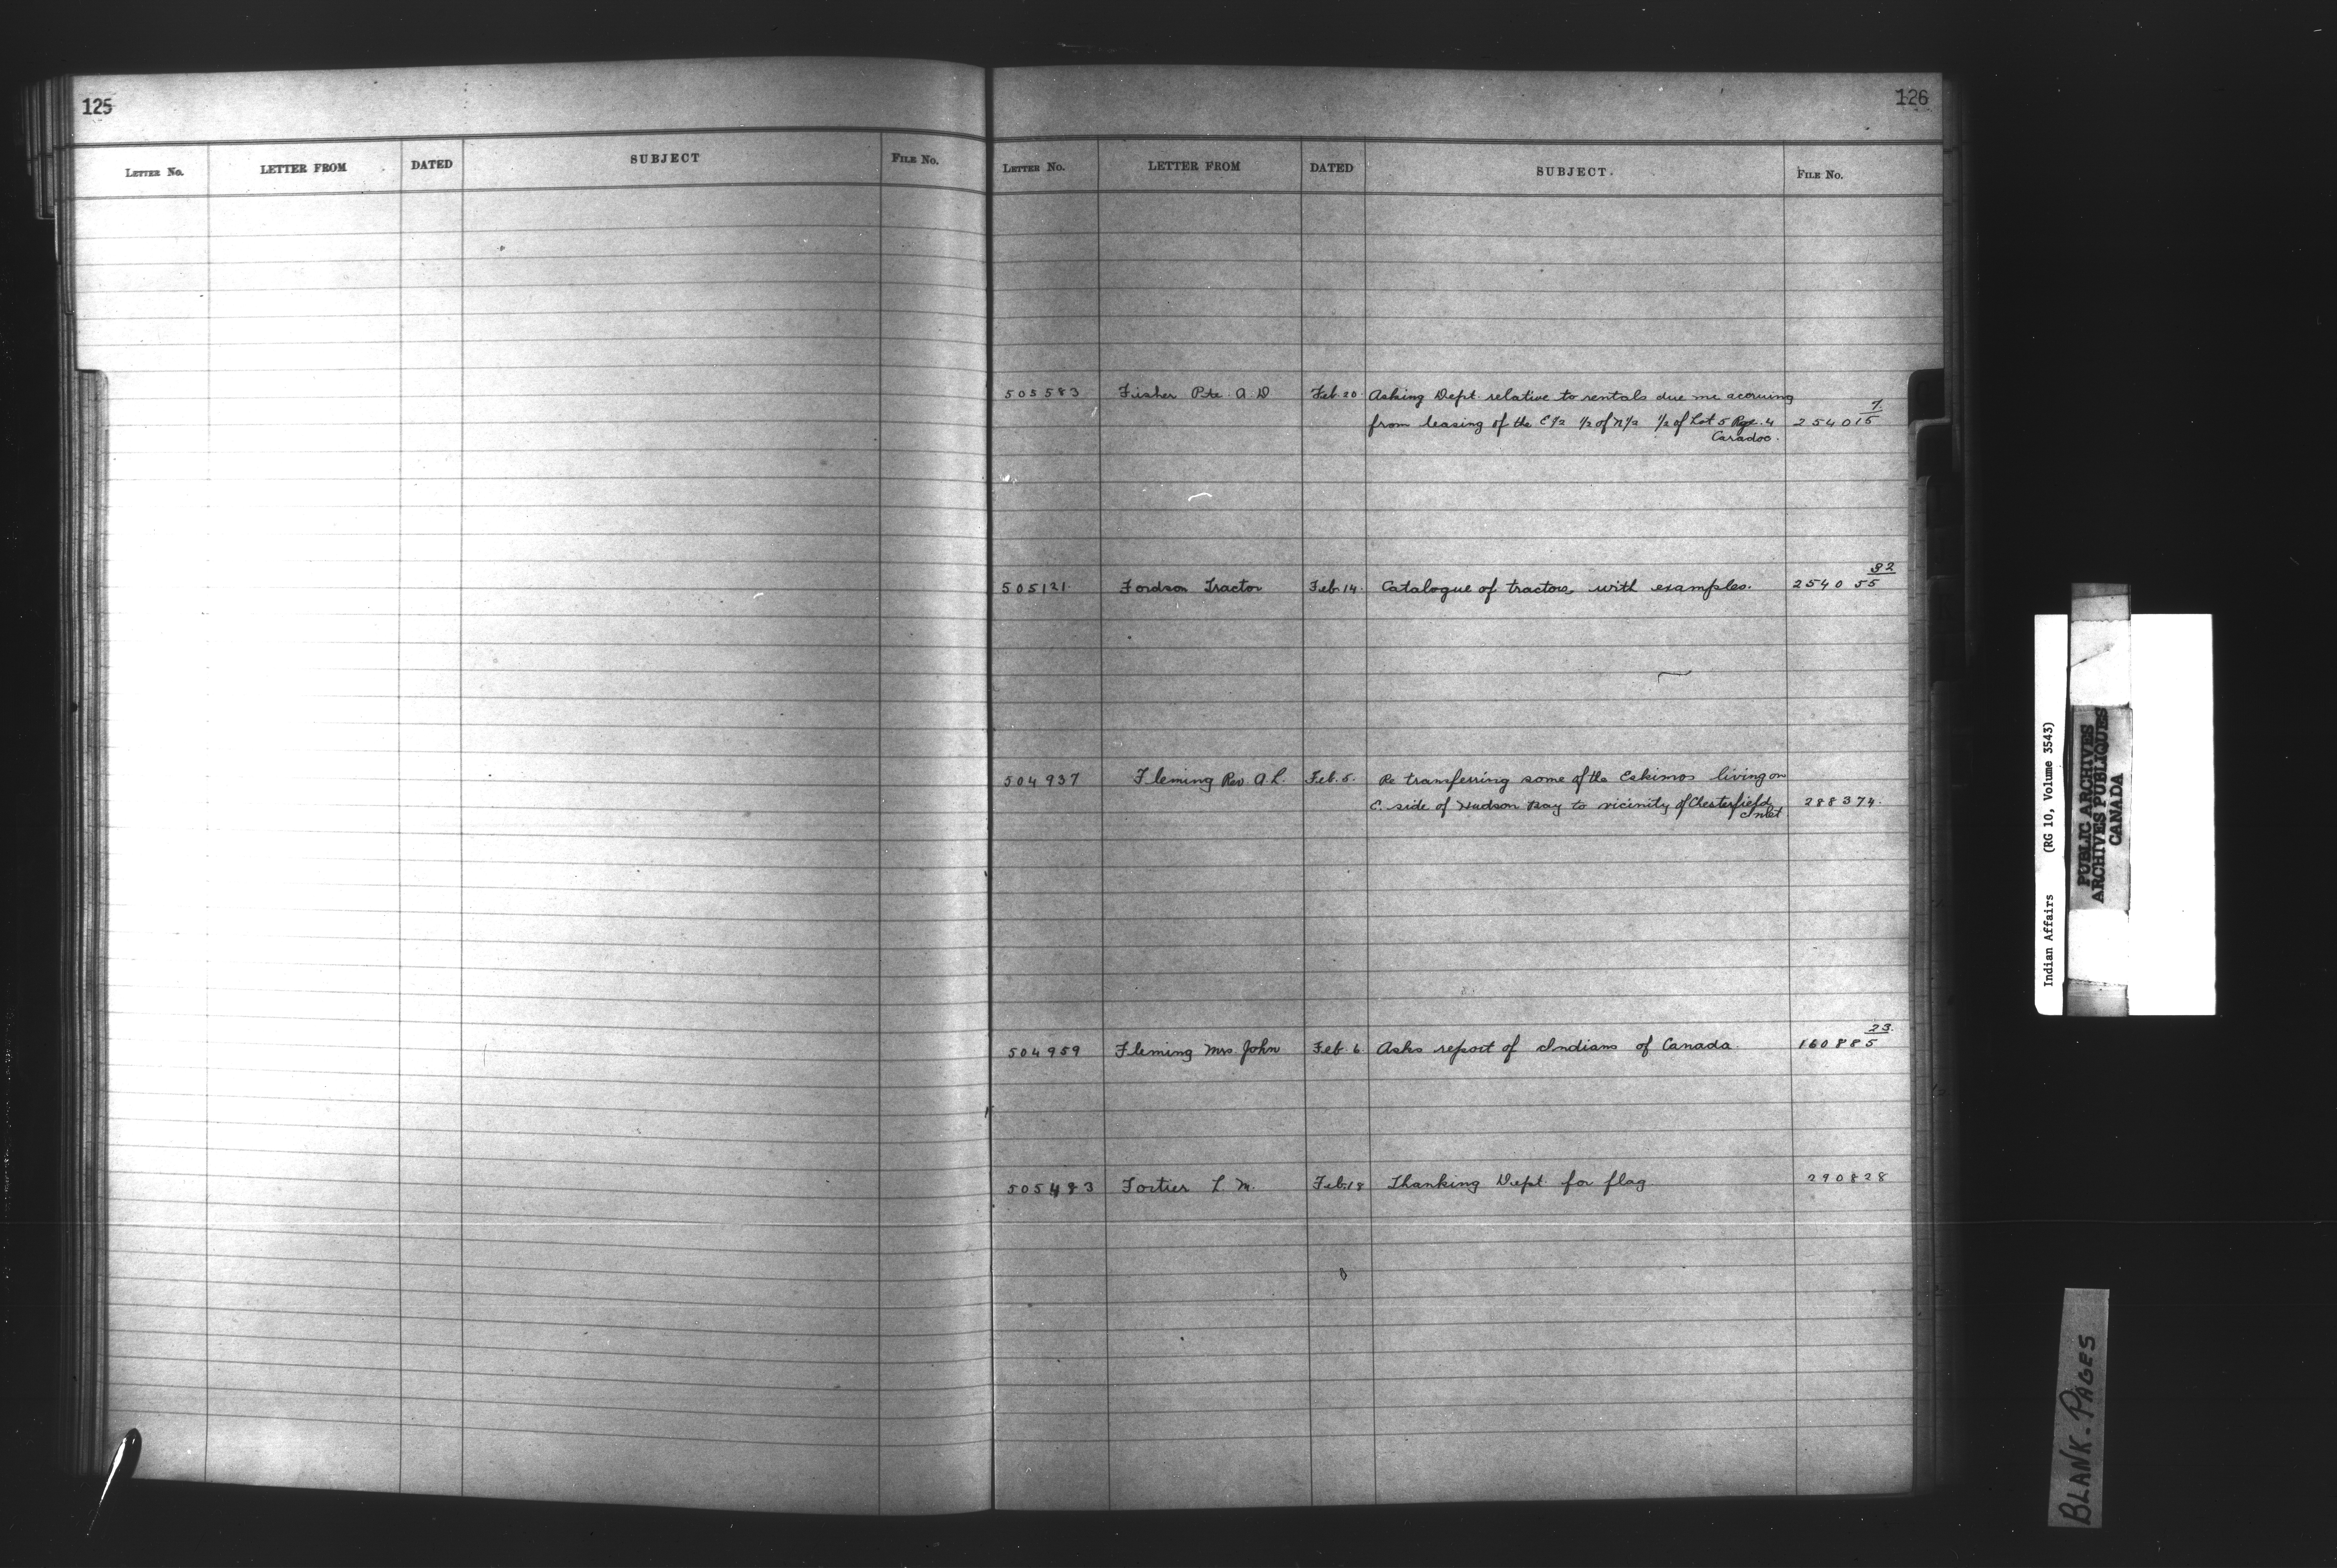 125
LETTER NO. LETTER FROM DATED SUBJECT FILE NO.
126
LETTER NO. LETTER FROM DATED SUBJECT. FILE NO.
505583 Fisher Pte. A. D Feb. 20. Asking Dept. relative to rentals due me accruing
7
from leasing of the E 1/2 1/2 of N 1/2 1/2 of Lot 5 Rge. 4 254015
Caradoc.
32
505121. Fordson Tractor Feb. 14. Catalogue of tractors, with examples. 254055
504937 Fleming Rev. A. L. Feb. 5. Re transferring some of the Eskimos living on
E. side of Hudson Bay to vicinity of Chesterfield 288374.
Inlet.
23.
504959 Fleming Mrs. John Feb. 6 Asks report of Indians of Canada. 160885
505483 Fortier L. M. Feb. 18 Thanking Dept. for flag. 290828
Indian Affairs (RG 10, Volume 3543)
PUBLIC ARCHIVES
ARCHIVES PUBLIQUES
CANADA
BLANK-PAGES